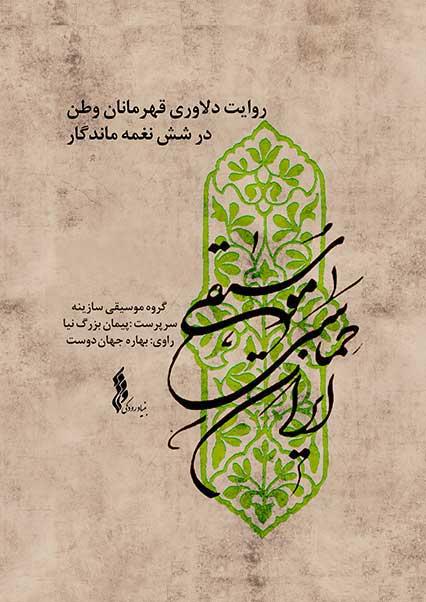 روایت دلاوری قهرمانان وطن
در شش نغمه ماندگار
موسیقی
حماسی
ایران
گروه موسیقی سازینه
سرپرست :پیمان بزرگ نیا
راوی: بهاره جهان دوست
بنیاد رودکی